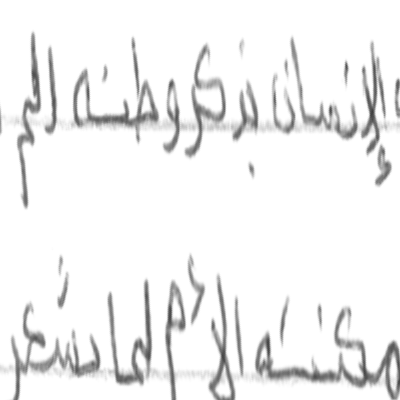 الإنسان بذكر وطنه الم
مكنته الأم لما شعر